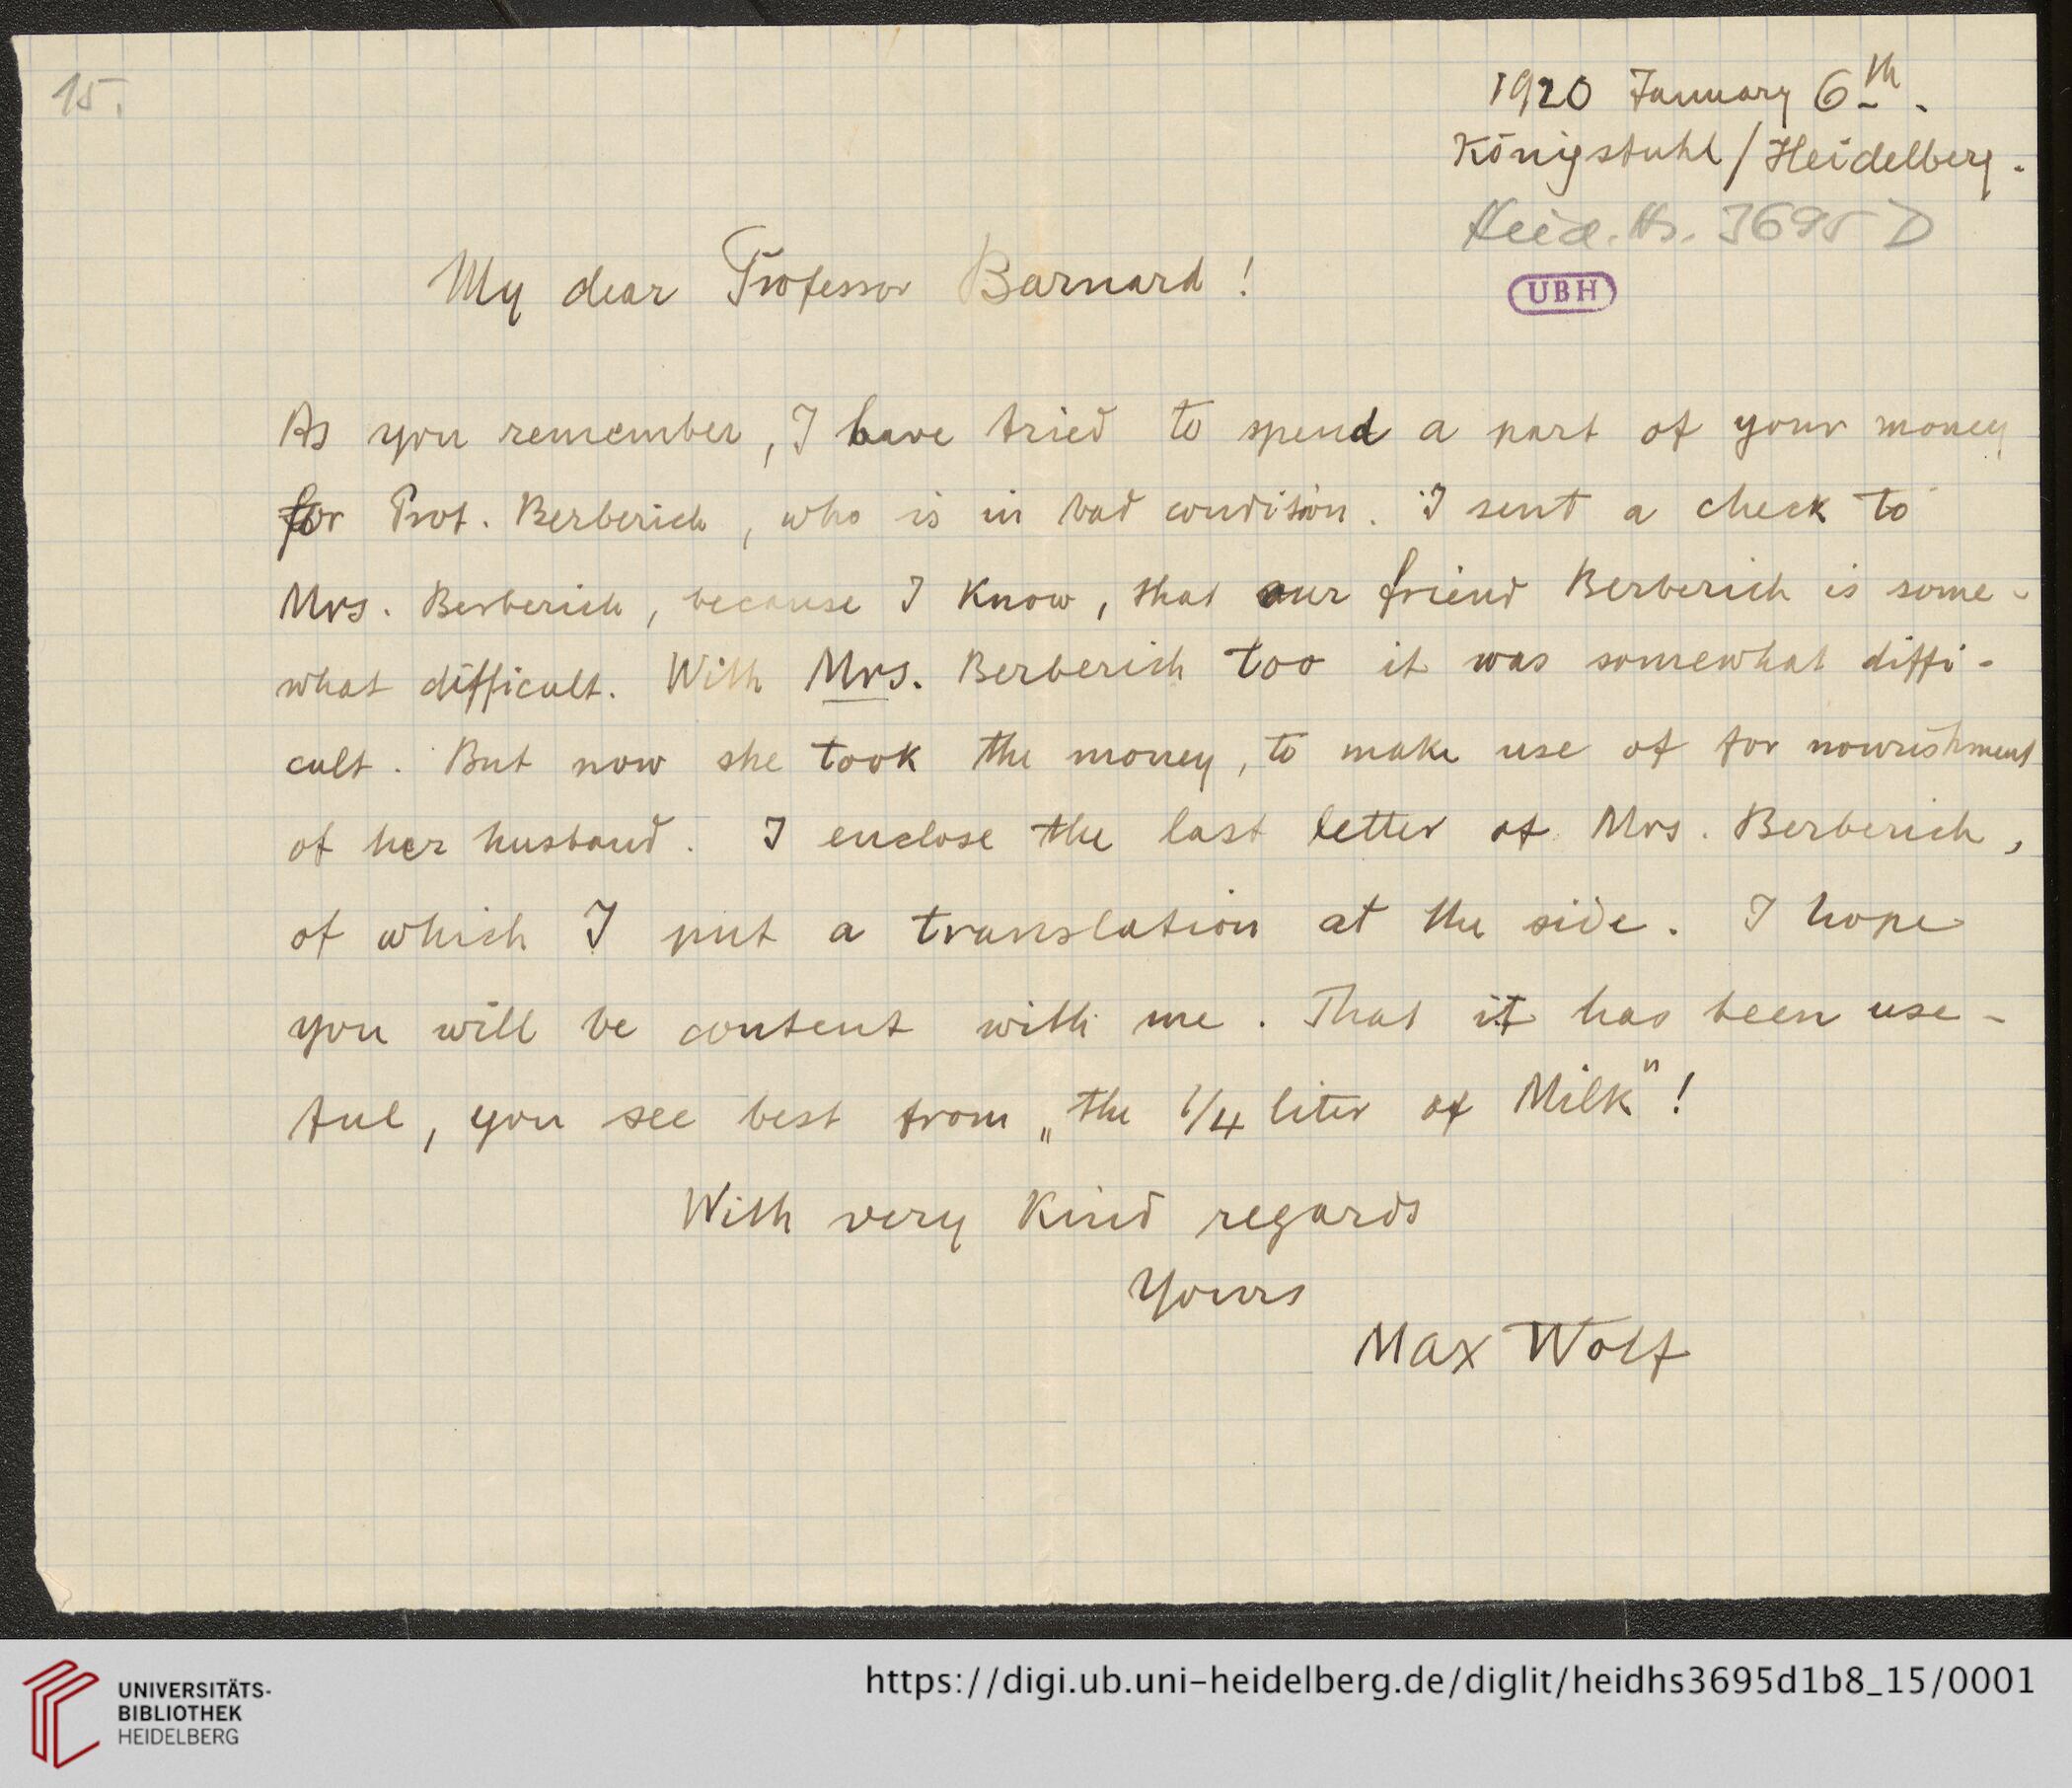 15.
1920 January 6th.
Königstuhl/Heidelberg.
Heid. Hs. 3695 D
UBH
My dear Professor Barnard!
As you remember, I have tried to spend a part of your money
for Prof. Berberich, who is in bad condition. I sent a check to
Mrs. Berberich, because I know, that our friend Berberich is some-
what difficult. With Mrs. Berberich too it was somewhat diffi-
cult. But now she took the money, to make use of for nourishment
of her husband. I enclose the last letter of Mrs. Berberich,
of which I put a translation at the side. I hope
you will be content with me. That it has been use-
ful, you see best from „the 1/4 liter of Milk"!
With very kind regards
Yours
Max Wolf
UNIVERSITÄTS-
BIBLIOTHEK
HEIDELBERG
https://digi.ub.uni-heidelberg.de/diglit/heidhs3695d1b8_15/0001